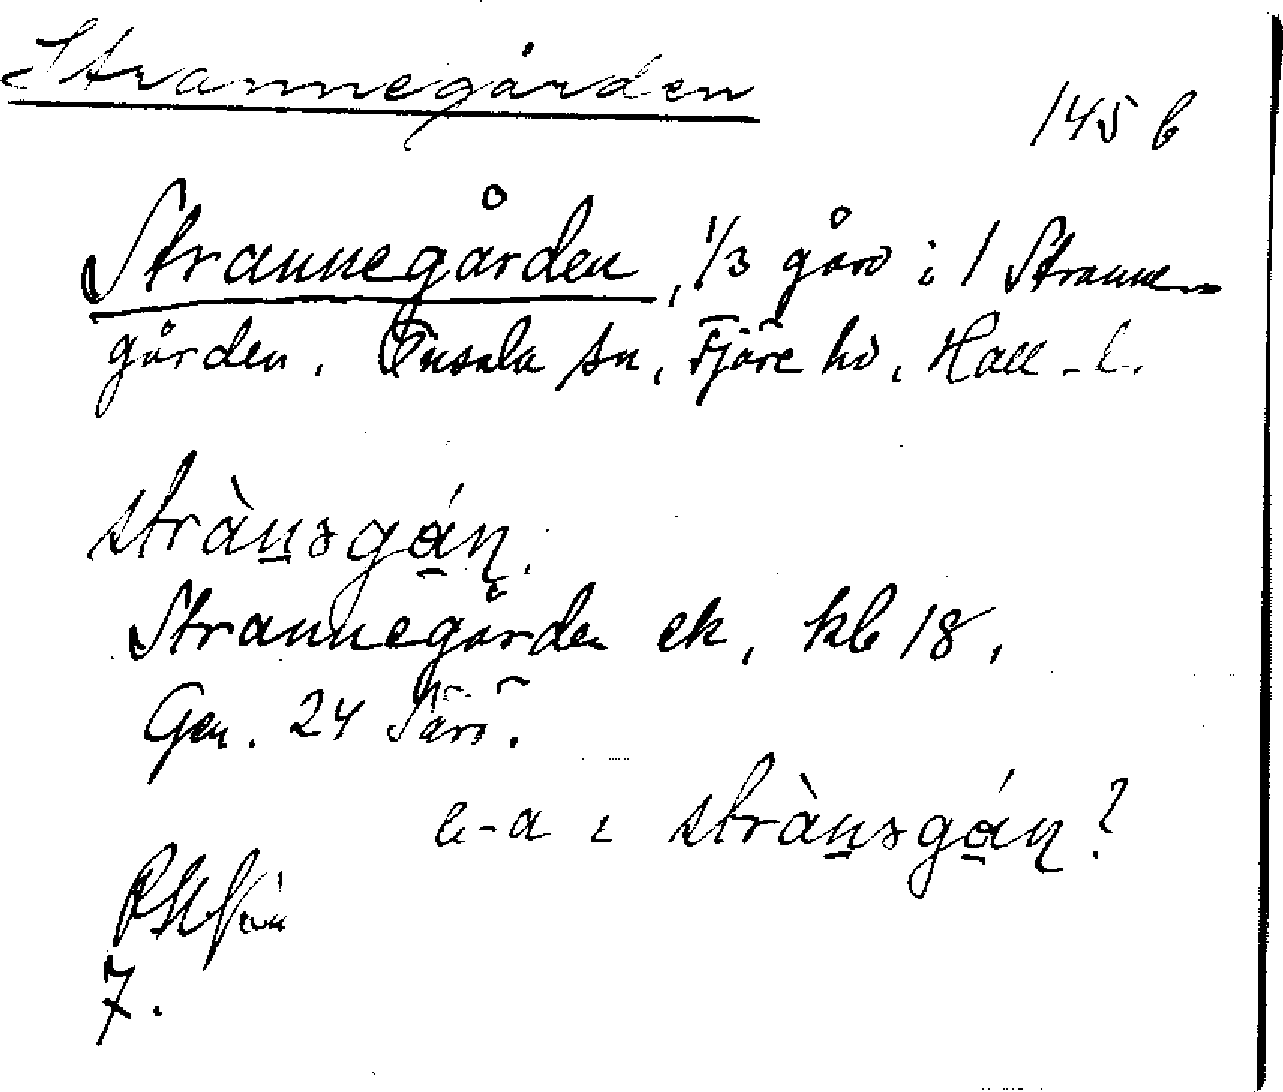 Strannegården
145 b
Strannegården, 1/3 gård i 1 Stranne-
gården. Onsala sn, Fjäre hd, Hall. l.
stràn̲əgá̲ɳ.
Strannegården ek, kb 18,
Gen. 24 Särö.
e-a i stràn̲əgá̲ɳ?
7.